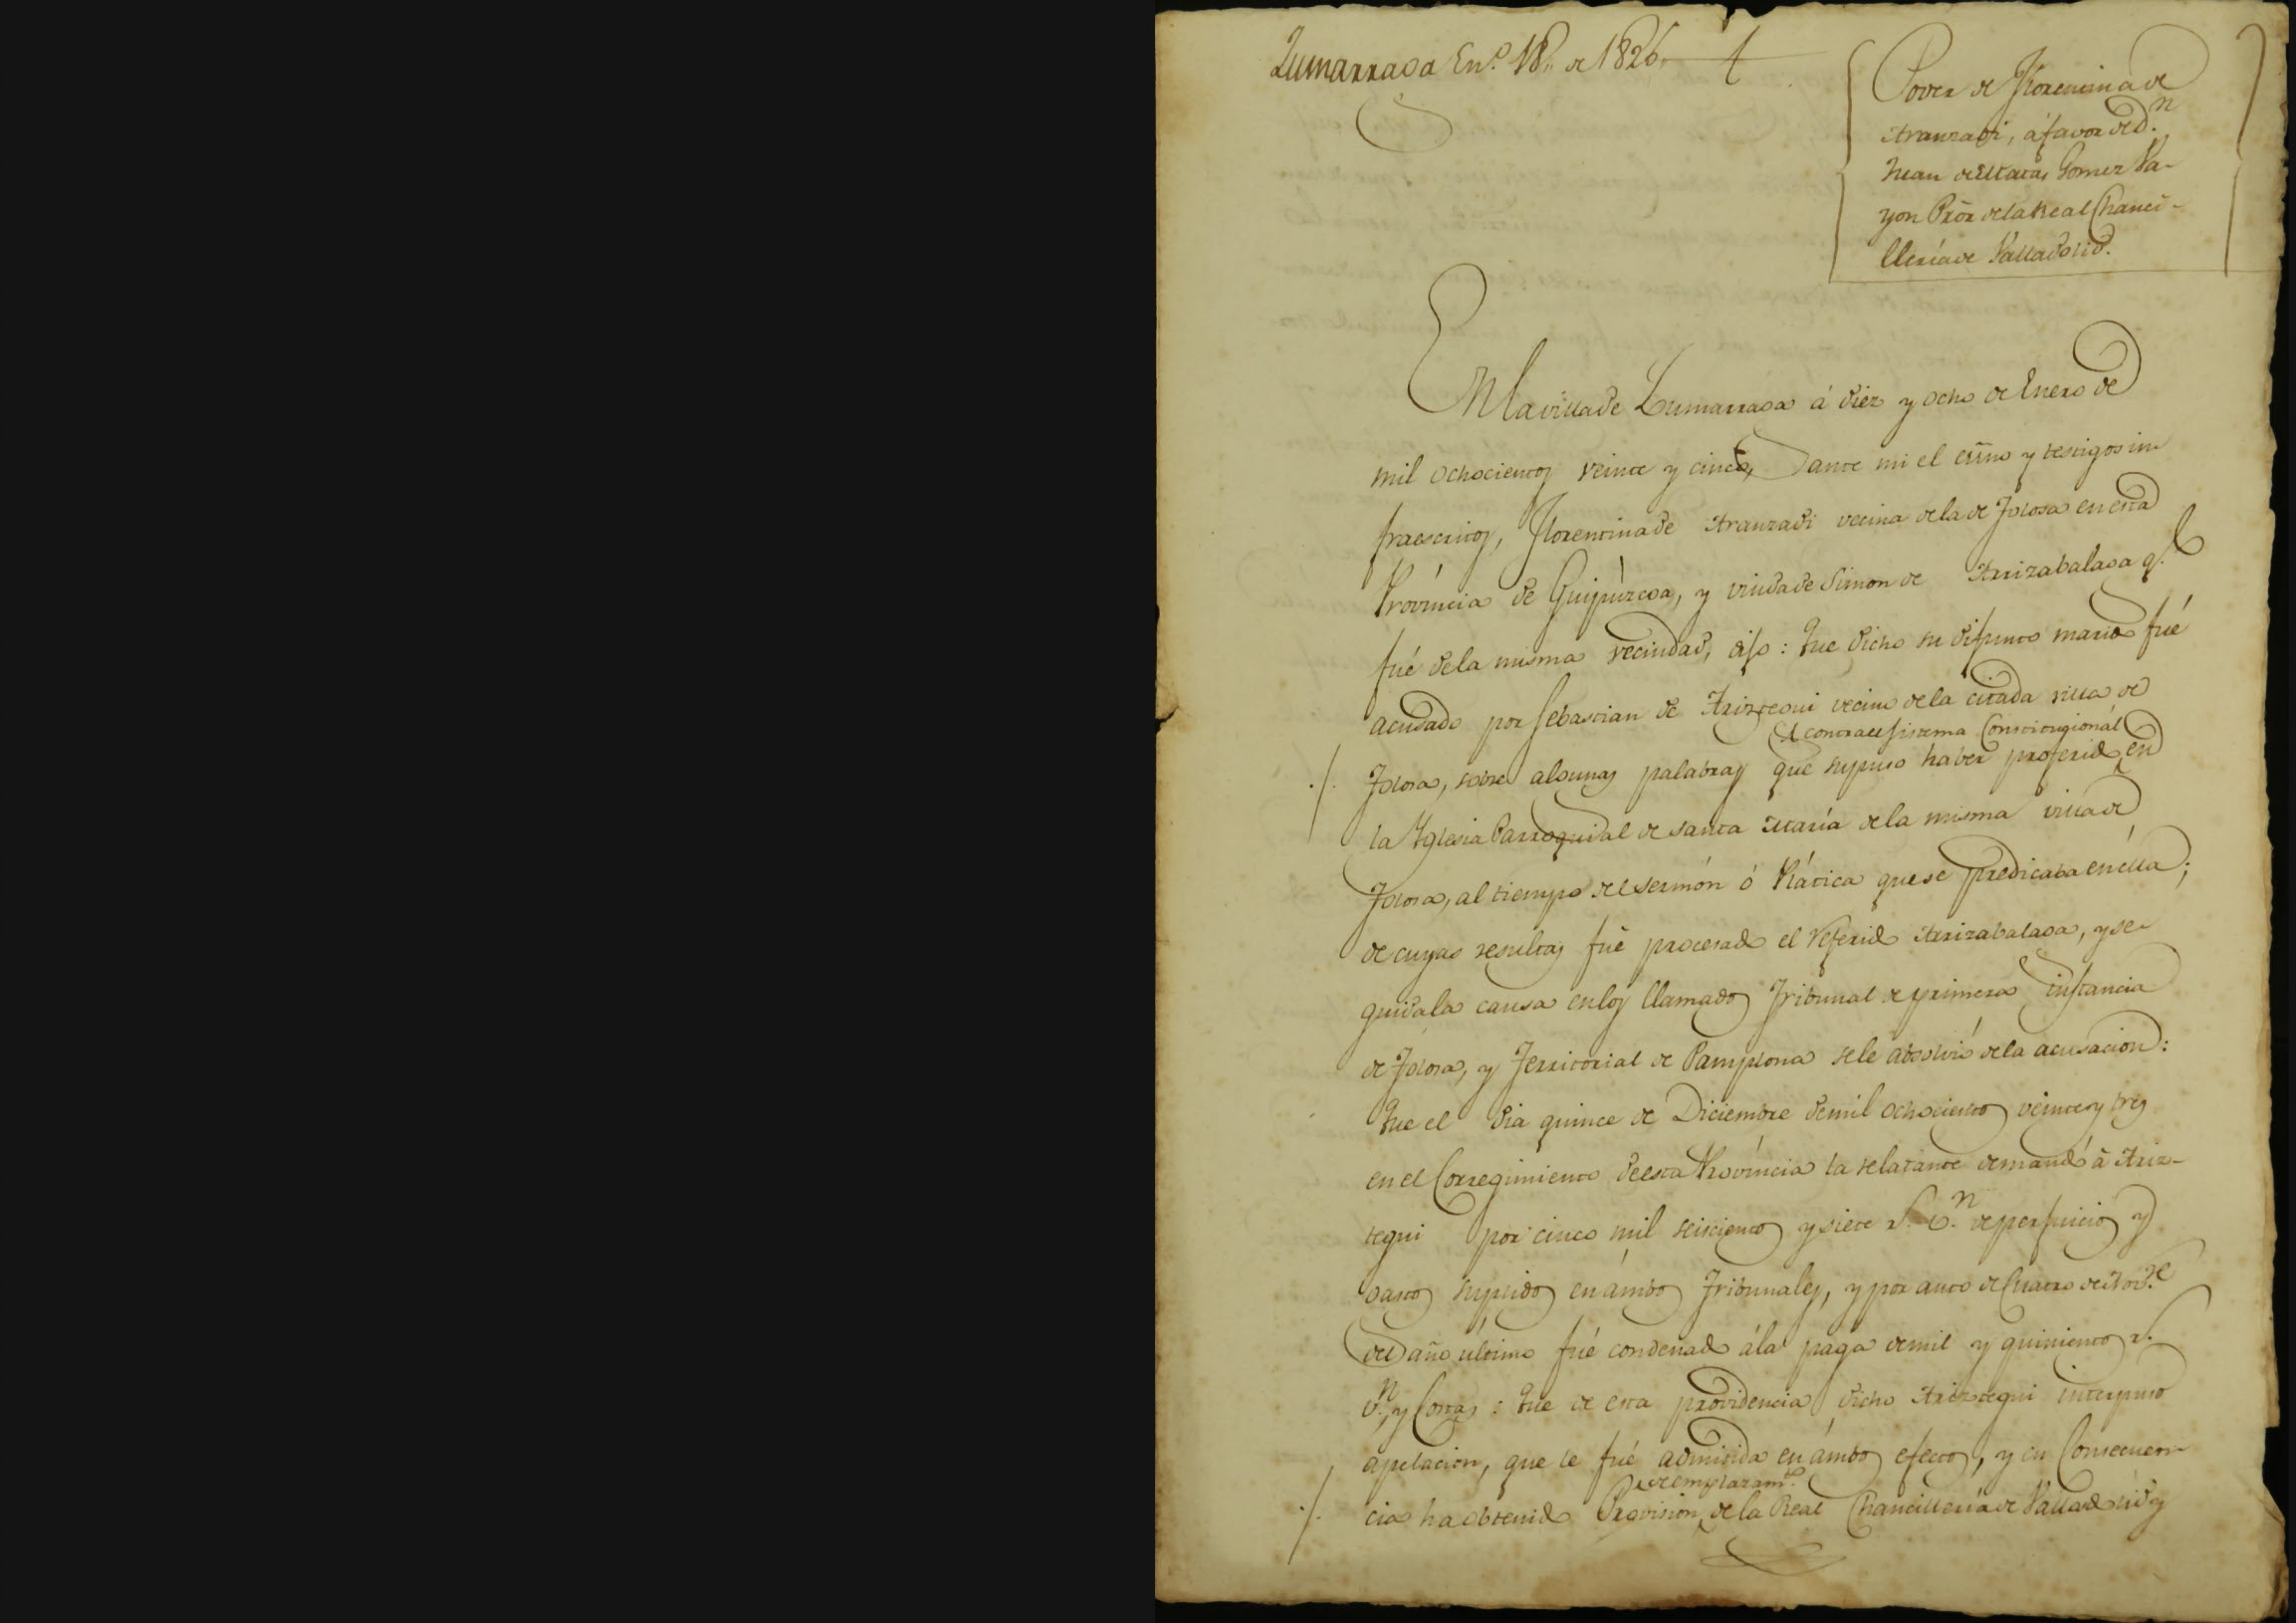 Zumarraga En.º 18,, de 1826.
Poder de Florencina de
Aranzadi, á favor de D.n
Juan de Matas Gomez Pa-
yon Pror de la Real Chanci-
llería de Valladolid.
En la villa de Zumarraga á diez y ocho de Enero de
mil ochocientos veinte y cinco, ante mi el esno y testigos in-
fraescritos, Florentina de Aranzadi vecina de la de Tolosa en esta
Província de Guipúzcoa, y viuda de Simon de Arrizabalaga q.e
fué de la misma vecindad, dijo: Que dicho su difunto marido fué
acusado por Sebastian de Ariztegui vecino de la citada villa de
contra el sistema Constitucionál
Tolosa, sobre algunas palabras que supuso haber proferido en
la Yglesia Parroquial de santa María de la misma villa de
Tolosa, al tiempo del sermón ó Plática que se predicaba en élla;
de cuyas resultas fué procesado el referido Arrizabalaga, y se-
guida la causa en los llamados Tribunal de primera instancia
de Tolosa, y Territorial de Pamplona se le absolvió de la acusación:
Que el dia quince de Diciembre de mil ochocientos veinte y tres
en el Corregimiento de esta Província la relatante demandó á Ariz-
tegui por cinco mil seiscientos y siete r.s v.n de perjuicios y
gastos suplidos en ámbos Tribunales, y por auto de Cuatro de Nov.e
del año último fué condenado á la paga de mil y quinientos r.s
v.n, y Costas: Que de esta providencia dicho Ariztegui interpuso
apelacion, que le fué admitida en ámbos efectos, y en Consecuen-
de emplazam.to
cia ha obtenido Provision de la Real Chancillería de Valladolid y